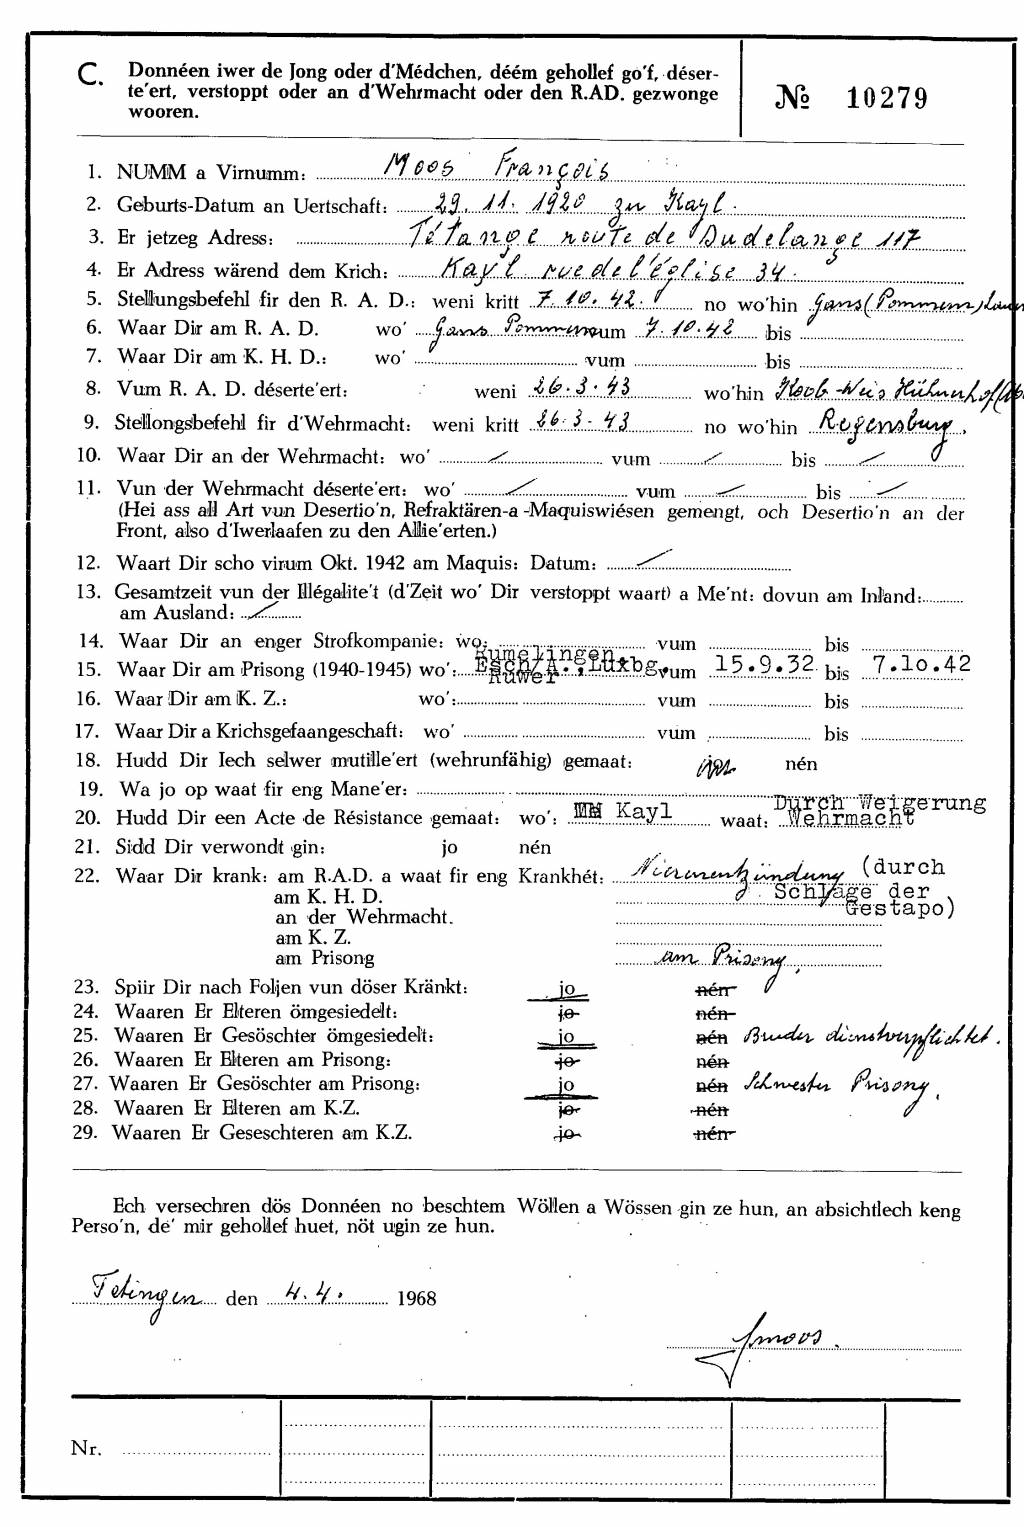 C. Donnéen iwer de Jong oder d'Médchen, déém gehollef go'f, déser-
te'ert, verstoppt oder an d'Wehrmacht oder den R.AD. gezwonge
wooren.
№ 10279
1. NUMM a Virnumm: Moos François
2. Geburts-Datum an Uertschaft: 29. 11. 1920 zu Kayl.
3. Er jetzeg Adress: Tétange route de Dudelange 117
4. Er Adress wärend dem Krich: Kayl rue de l'église 34.
5. Stellungsbefehl fir den R. A. D.: weni kritt 7.10.42. no wo'hin Gans (Pommern)
6. Waar Dir am R. A. D. wo' Gans Pommern um 7.10.42 bis
7. Waar Dir am K. H. D.: wo' vum bis
8. Vum R. A. D. déserte'ert: weni 26.3.43 wo'hin Koob-Weis Hühnerhof
9. Stellongsbefehl fir d'Wehrmacht: weni kritt 26.3.43 no wo'hin Regensburg.
10. Waar Dir an der Wehrmacht: wo' / vum / bis /
11. Vun der Wehrmacht déserte'ert: wo' / vum / bis /
(Hei ass all Art vun Desertio'n, Refraktären-a-Maquiswiésen gemengt, och Desertio'n an der
Front, also d'Iwerlaafen zu den Allie'erten.)
12. Waart Dir scho virum Okt. 1942 am Maquis: Datum: /
13. Gesamtzeit vun der Illégalite't (d'Zeit wo' Dir verstoppt waart) a Me'nt: dovun am Inland:
am Ausland: /
14. Waar Dir an enger Strofkompanie: wo: vum bis
Rumelingen,
15. Waar Dir am Prisong (1940-1945) wo': Esch/A.,Luxbg, vum 15.9.32 bis 7.10.42
Ruwer
16. Waar Dir am K. Z.: wo': vum bis
17. Waar Dir a Krichsgefaangeschaft: wo' vum bis
18. Hudd Dir Iech selwer mutille'ert (wehrunfähig) gemaat: nén
19. Wa jo op waat fir eng Mane'er:
Durch Weigerung
20. Hudd Dir een Acte de Résistance gemaat: wo': Kayl waat: Wehrmacht
21. Sidd Dir verwondt gin: jo nén
22. Waar Dir krank: am R.A.D. a waat fir eng Krankhét: Nierenentzündung (durch
am K. H. D. Schläge der
an der Wehrmacht. Gestapo)
am K. Z.
am Prisong am Prisong,
23. Spiir Dir nach Foljen vun döser Kränkt: jo nén
24. Waaren Er Elteren ömgesiedelt: jo nén
25. Waaren Er Gesöschter ömgesiedelt: jo nén Bruder dienstverpflichtet.
26. Waaren Er Elteren am Prisong: jo nén
27. Waaren Er Gesöschter am Prisong: jo nén Schwester Prisong.
28. Waaren Er Elteren am K.Z. jo nén
29. Waaren Er Geseschteren am K.Z. jo nén
Ech versechren dös Donnéen no beschtem Wöllen a Wössen gin ze hun, an absichtlech keng
Perso'n, de' mir gehollef huet, nöt ugin ze hun.
Tetingen den 4.4. 1968
Fmoos.
Nr.